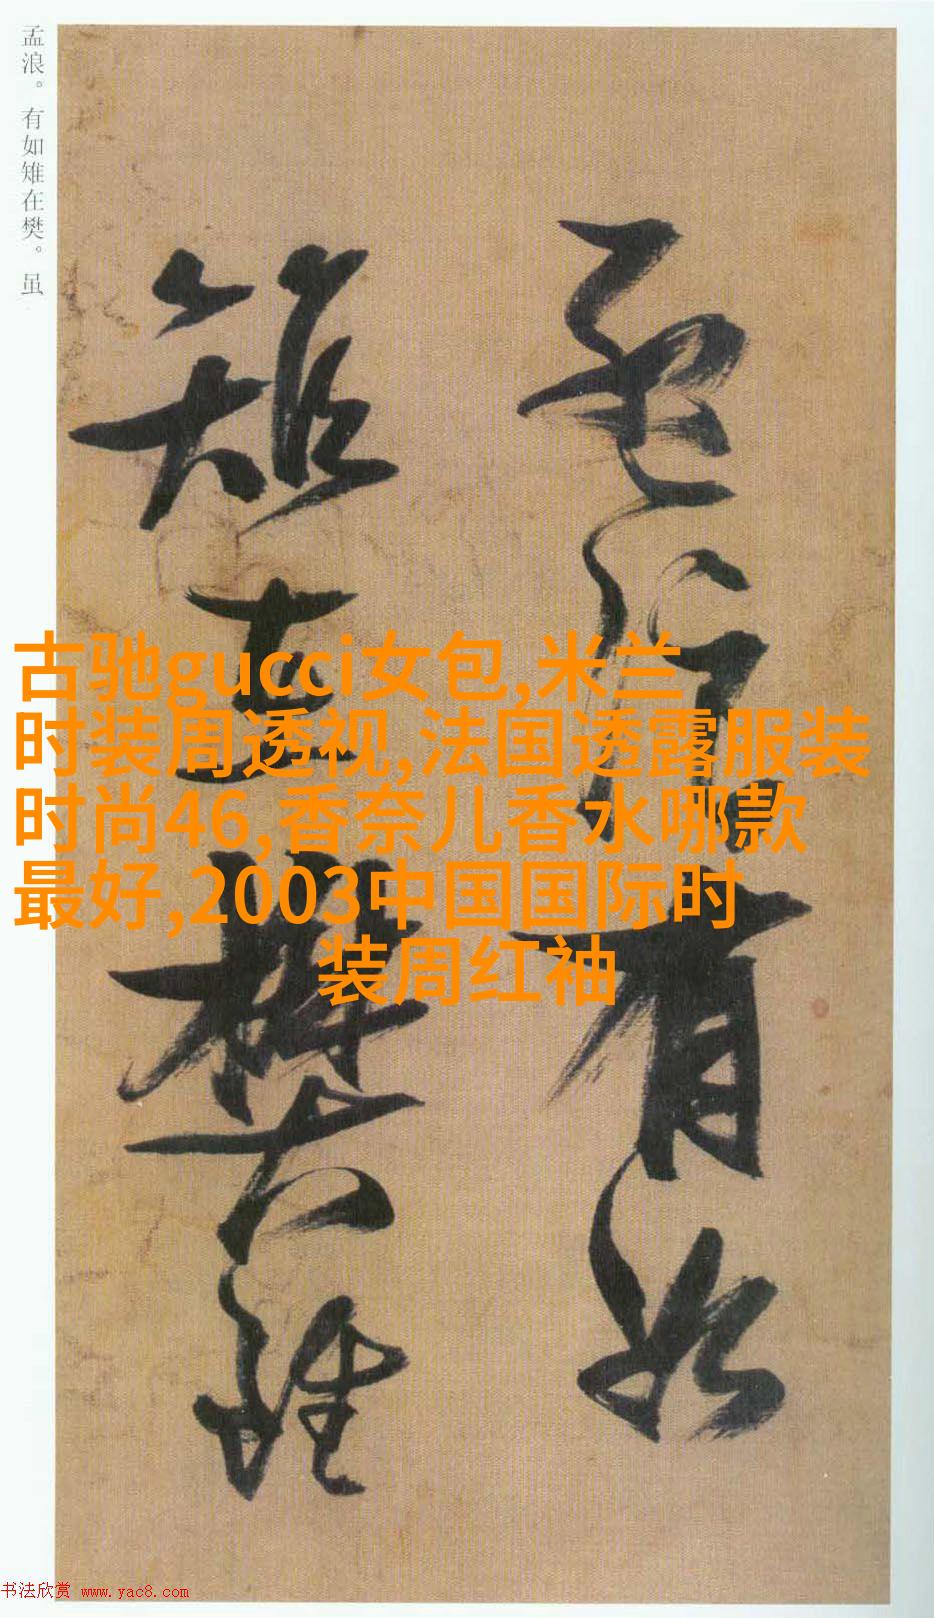 孟浪。有如雉在樊。虽
孟浪有如
雉在樊雖
古驰gucci女包,米兰
时装周透视,法国透露服装
时尚46,香奈儿香水哪款
最好,2003中国国际时
装周红袖
书法欣赏 www.yac8.com